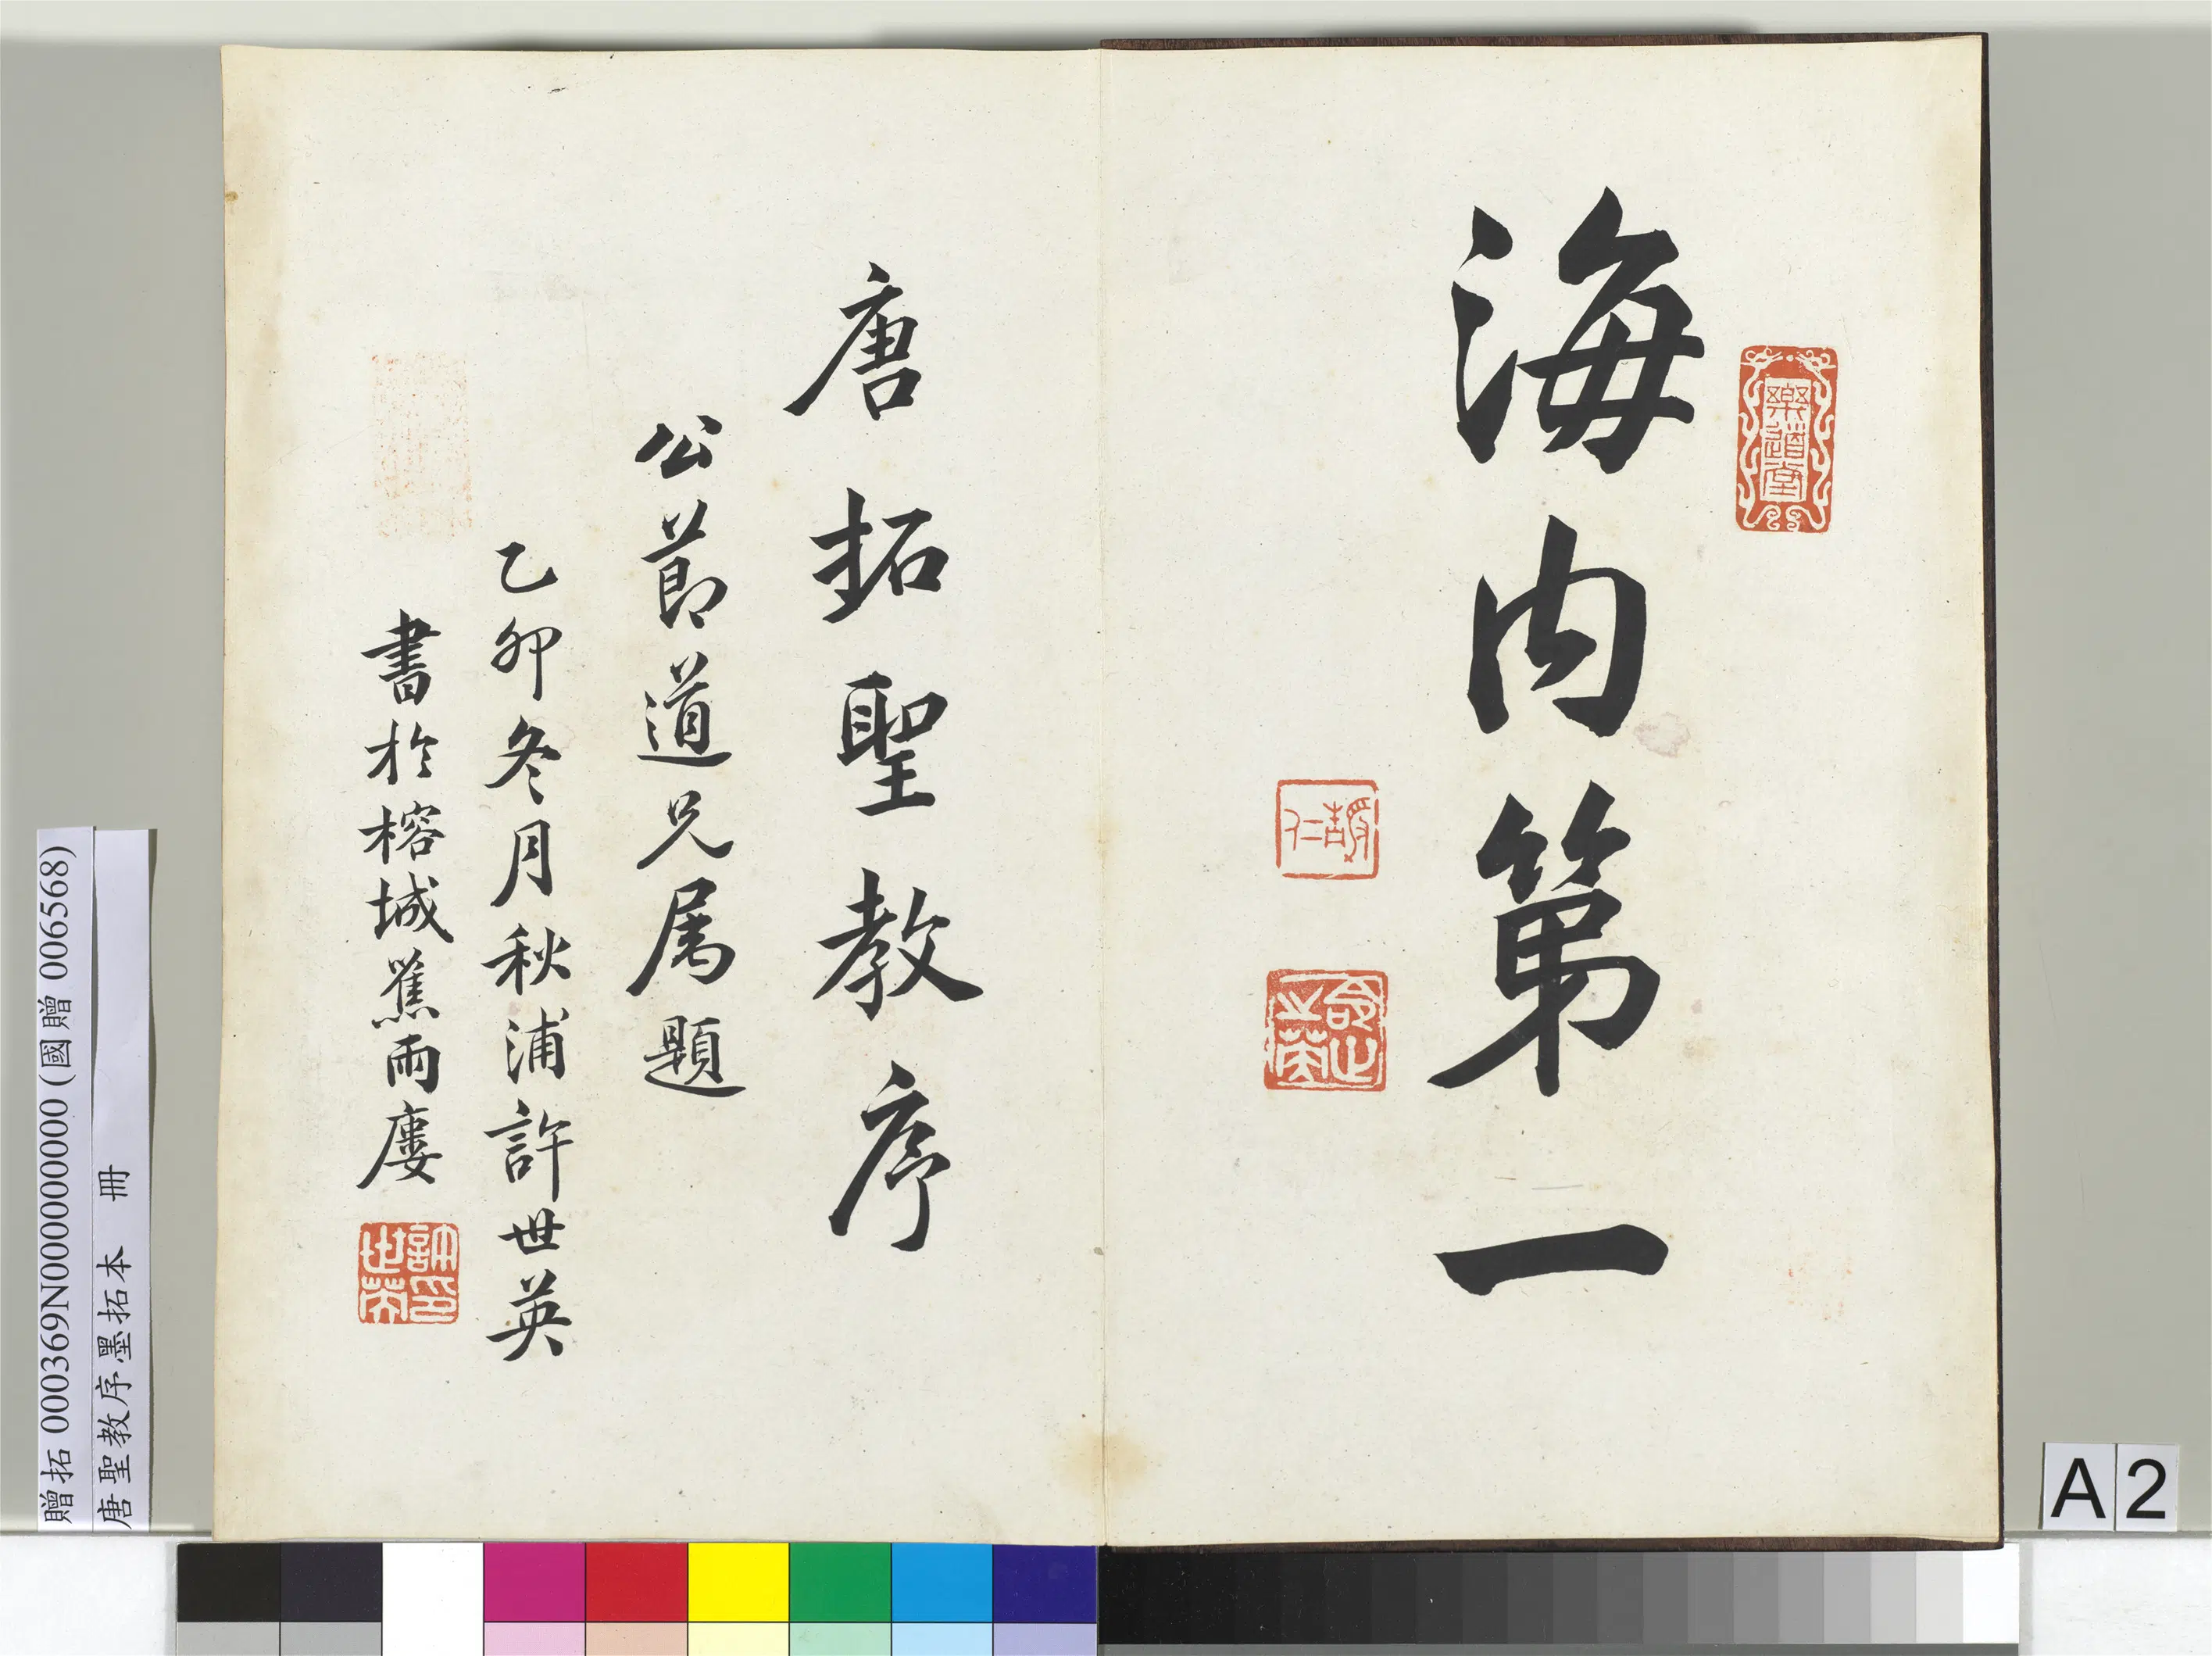 海内第一
樂道堂
唐拓聖教序
公莭道兄属題
乙卯冬月秋浦許世英
書於榕城蕉雨廔
許世英印
贈拓 000369N000000000 (國贈 006568)
唐聖教序墨拓本 冊
A2